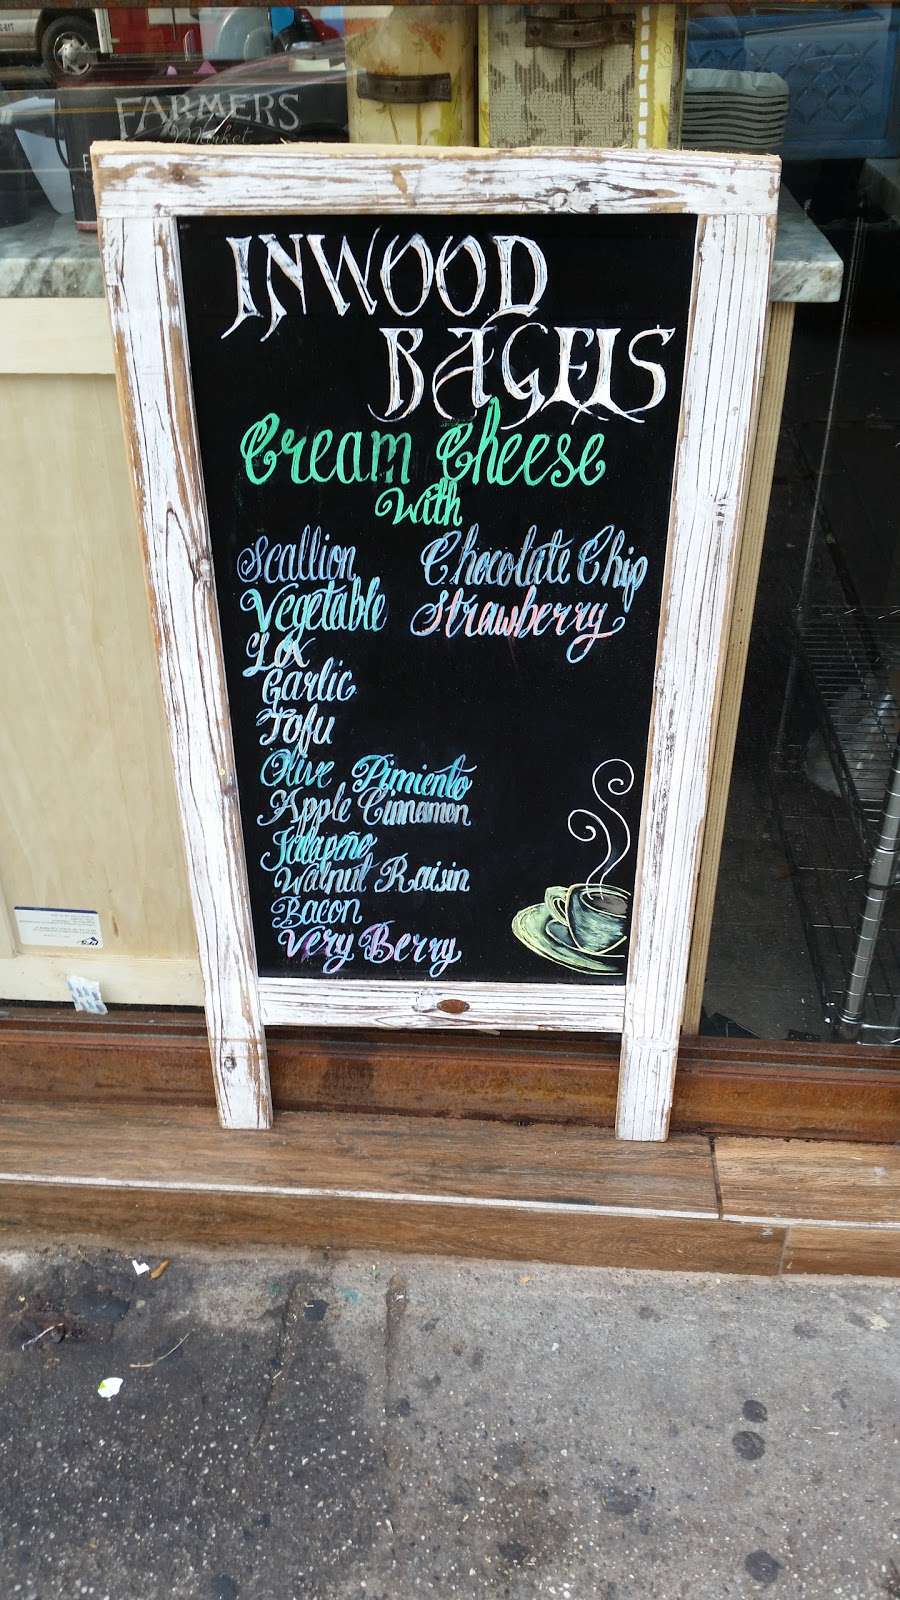 FARMERS
Market
INWOOD
BAGELS
Cream Cheese
With
Scallion
Vegetable
Lox
Garlic
Tofu
Olive Pimiento
Apple Cinnamon
Jalapeño
Walnut Raisin
Bacon
Very Berry
Chocolate Chip
Strawberry